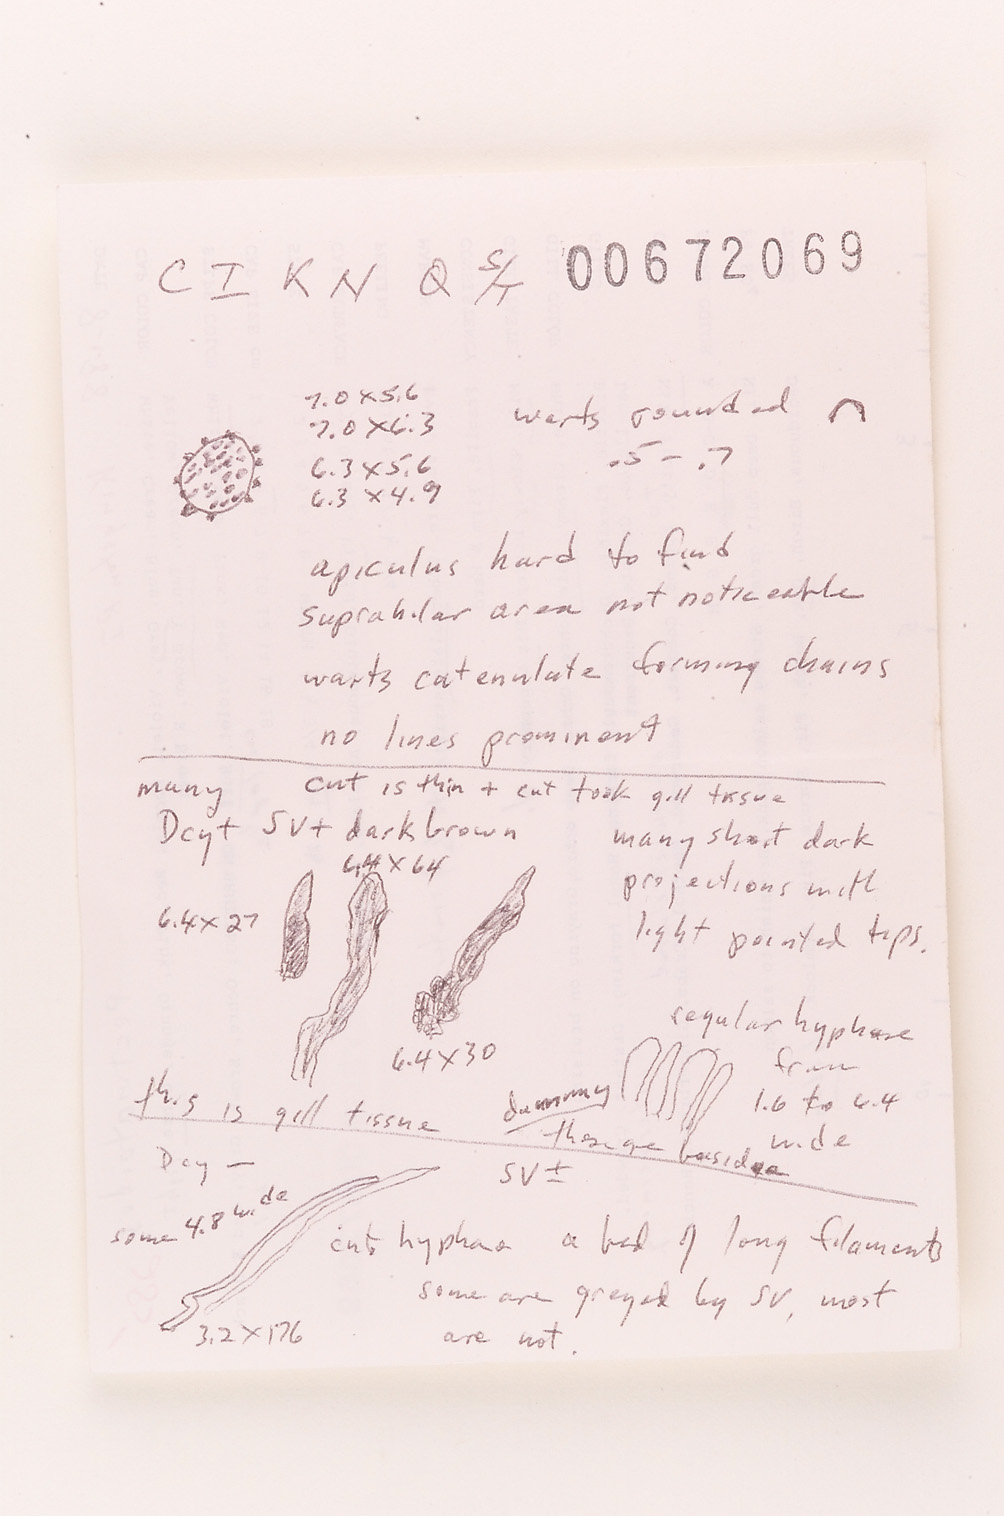 C I K N Q S/T 00672069
7.0 x 5.6
7.0 x 6.3
6.3 x 5.6
6.3 x 4.9
warts rounded
.5 - .7
apiculus hard to find
suprahilar area not noticeable
warts catenulate forming chains
no lines prominent
many cut is thin + cut took gill tissue
Dcyt SV+ dark brown
many short dark
projections with
light pointed tips.
6.4 x 27
6.4 x 64
6.4 x 30
regular hyphae
from
1.6 to 6.4
wide
this is gill tissue
dummy
these are basidia
Dcy -
SV ±
some 4.8 wide
cuts hyphae a bed of long filaments
some are greyed by SV, most
are not.
3.2 x 176